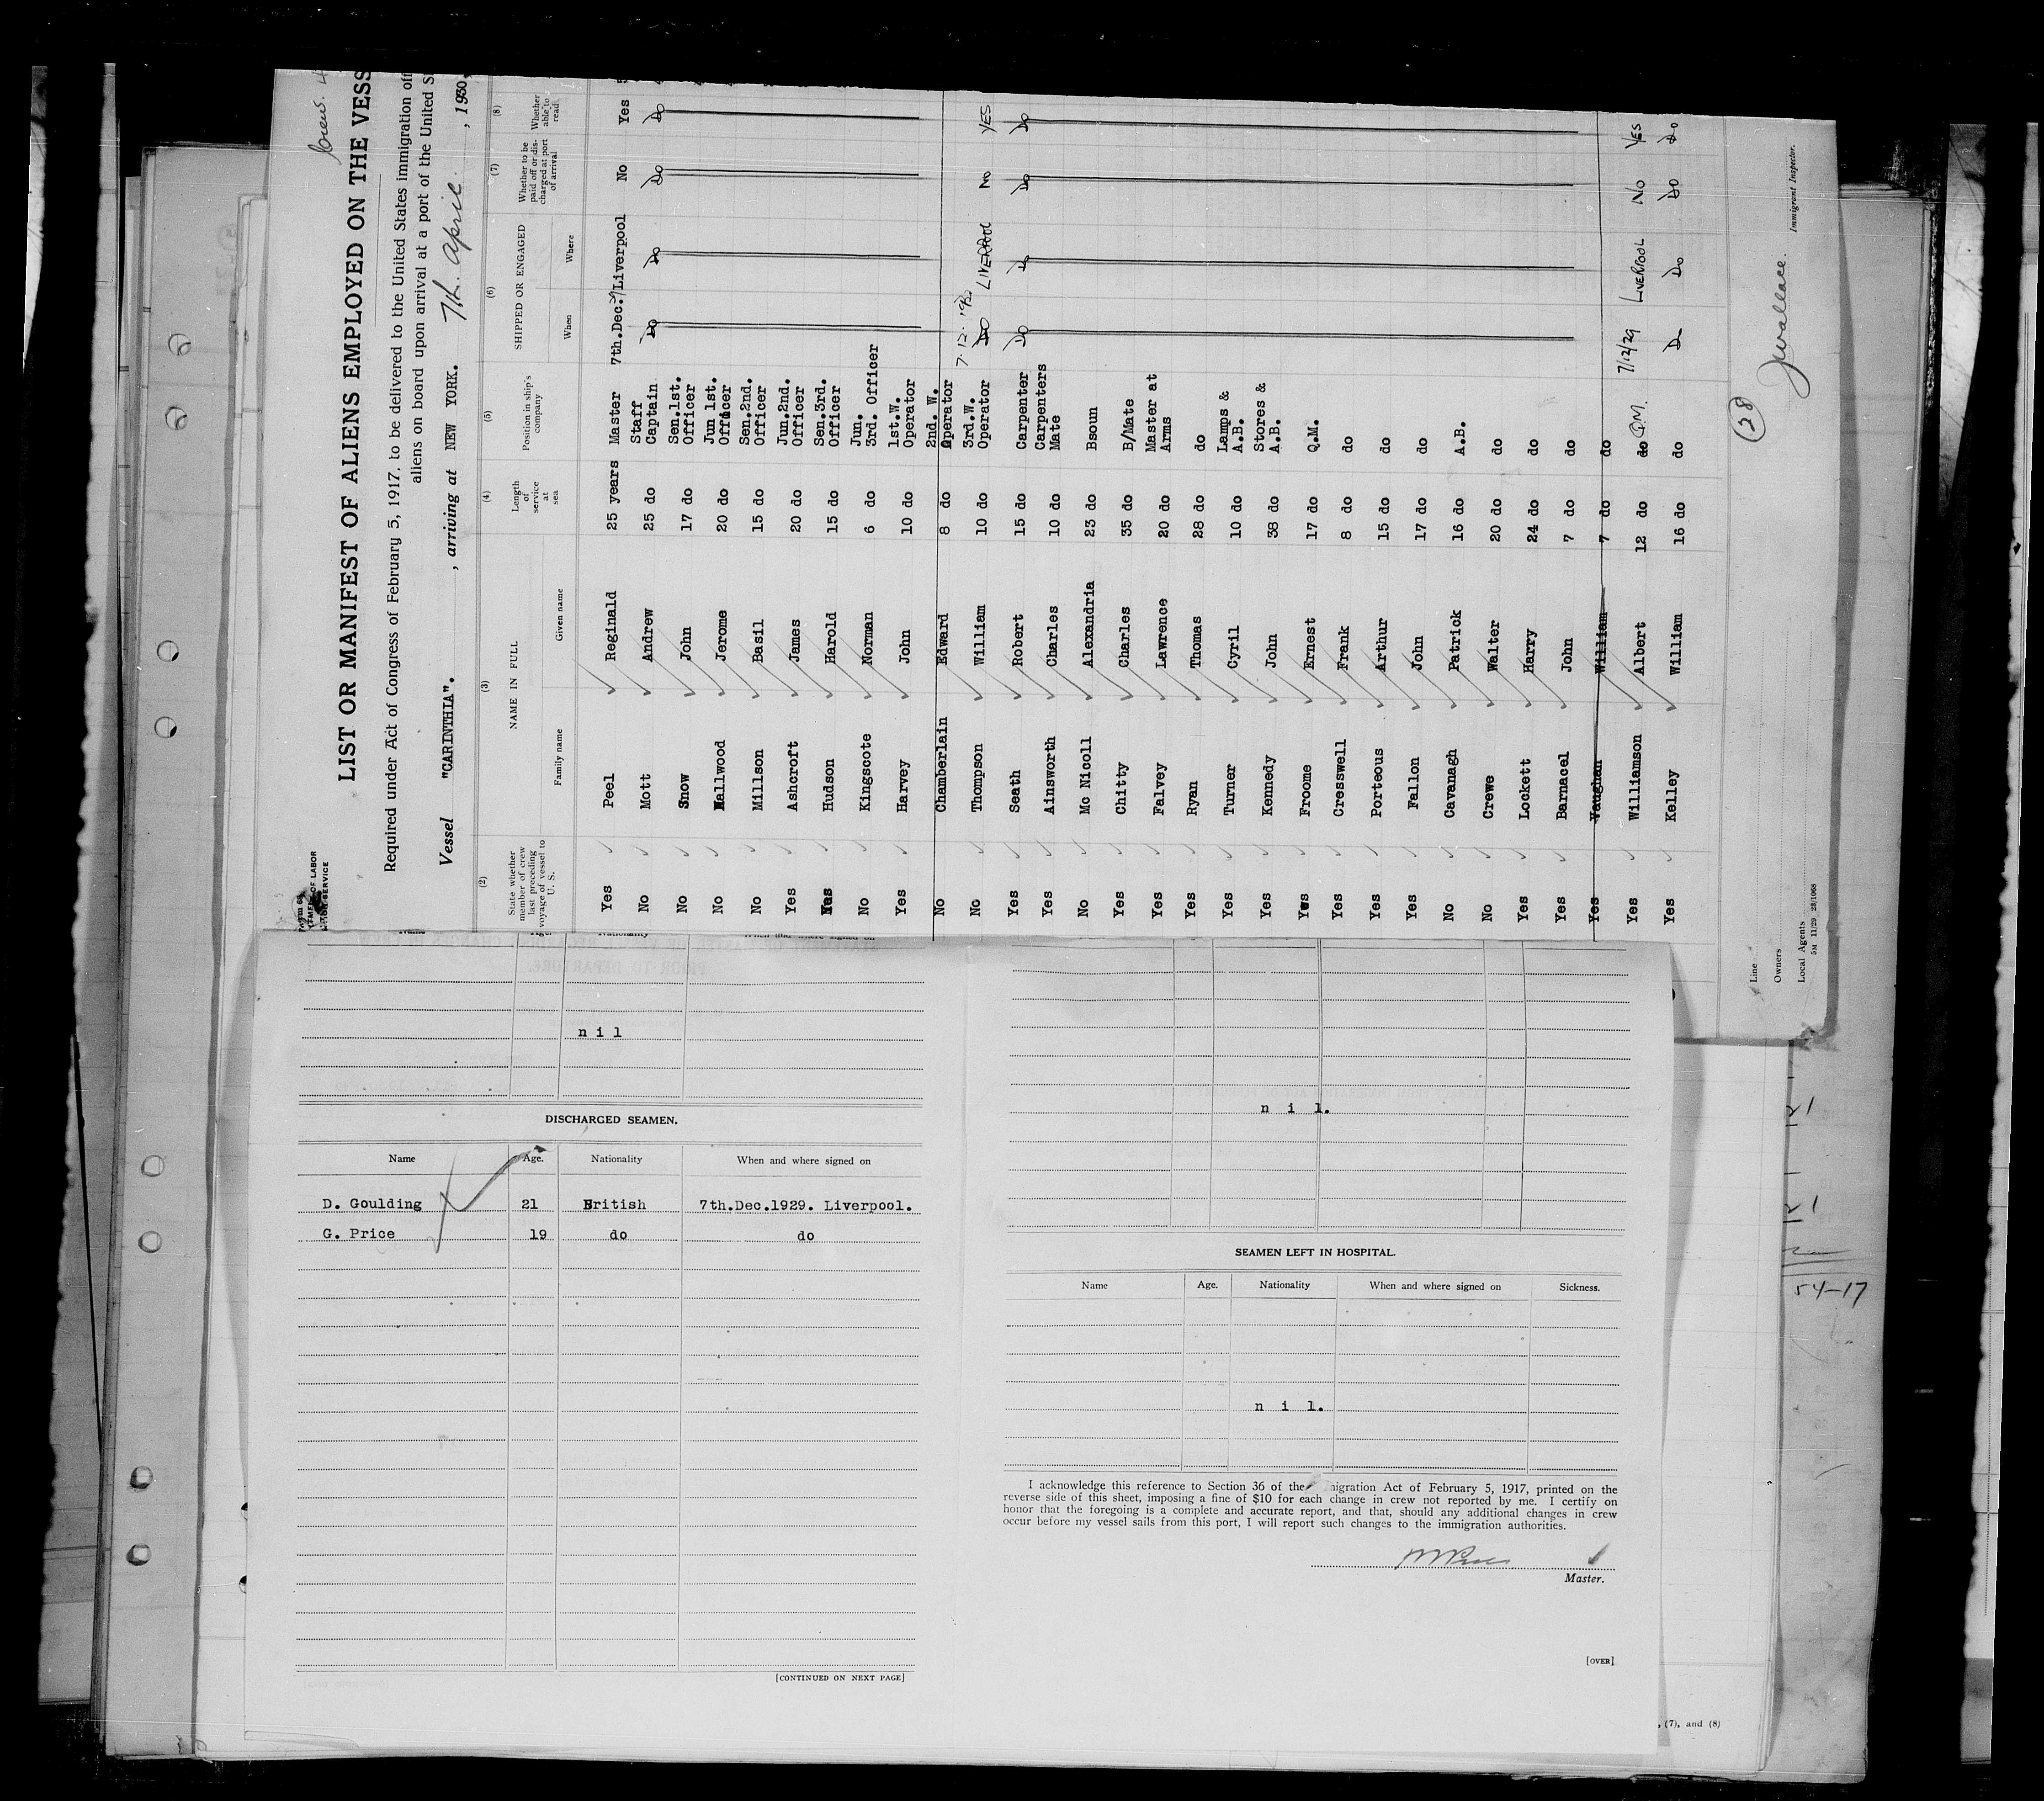 LIST OR MANIFEST OF ALIENS EMPLOYED ON THE VESS
Required under Act of Congress of February 5, 1917, to be delivered to the United States immigration off
aliens on board upon arrival at a port of the United S
Vessel "CARINTHIA". , arriving at NEW YORK. 7th. April , 1930,
(2) (3) (4) (5) (6) (7) (8)
State whether member of crew last preceding voyage of vessel to U. S. NAME IN FULL Length of service at sea Position in ship's company SHIPPED OR ENGAGED Whether to be paid off or discharged at port of arrival Whether able to read
Family name Given name When Where
Yes Peel Reginald 25 years Master 7th.Dec. Liverpool No Yes
No Mott Andrew 25 do Staff Captain Do Do Do Do
No Snow John 17 do Sen.1st. Officer
No Mallwood Jerome 20 do Jun 1st. Officer
No Millson Basil 15 do Sen.2nd. Officer
Yes Ashcroft James 20 do Jun.2nd. Officer
Yes Hudson Harold 15 do Sen.3rd. Officer
No Kingscote Norman 6 do Jun. 3rd. Officer
Yes Harvey John 10 do 1st.W. Operator
No Chamberlain Edward 8 do 2nd. W. Operator
No Thompson William 10 do 3rd.W. Operator Do LIVERPOOL NO YES
Yes Seath Robert 15 do Carpenter Do Do Do Do
Yes Ainsworth Charles 10 do Carpenters Mate
No Mc Nicoll Alexandria 23 do Bsoun
Yes Chitty Charles 35 do B/Mate
Yes Falvey Lawrence 20 do Master at Arms
Yes Ryan Thomas 28 do do
Yes Turner Cyril 10 do Lamps & A.B.
Yes Kennedy John 38 do Stores & A.B.
Yes Froome Ernest 17 do Q.M.
Yes Cresswell Frank 8 do do
Yes Porteous Arthur 15 do do
Yes Fallon John 17 do do
No Cavanagh Patrick 16 do A.B.
No Crewe Walter 20 do do
Yes Lockett Harry 24 do do
Yes Barnacel John 7 do do
Yes Vaughan William 7 do do
Yes Williamson Albert 12 do do Q.M. 7/12/29 LIVERPOOL NO YES
Yes Kelley William 16 do do D Do Do Do
Line
Owners
Local Agents
5M 11/29 28/1068
(28)
JWallace.
Immigrant Inspector.
nil
DISCHARGED SEAMEN.
Name Age. Nationality When and where signed on
D. Goulding 21 British 7th.Dec.1929. Liverpool.
G. Price 19 do do
[CONTINUED ON NEXT PAGE]
n i l.
SEAMEN LEFT IN HOSPITAL.
Name Age. Nationality When and where signed on Sickness.
n i l.
I acknowledge this reference to Section 36 of the migration Act of February 5, 1917, printed on the
reverse side of this sheet, imposing a fine of $10 for each change in crew not reported by me. I certify on
honor that the foregoing is a complete and accurate report, and that, should any additional changes in crew
occur before my vessel sails from this port, I will report such changes to the immigration authorities.
Master.
[OVER]
54-17
, (7), and (8)